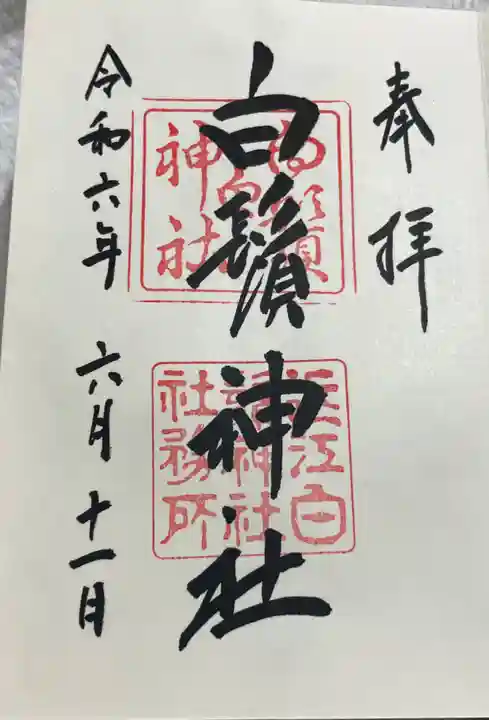 奉拝
白鬚神社
近江白
鬚神社
社務所
令和六年 六月十一日